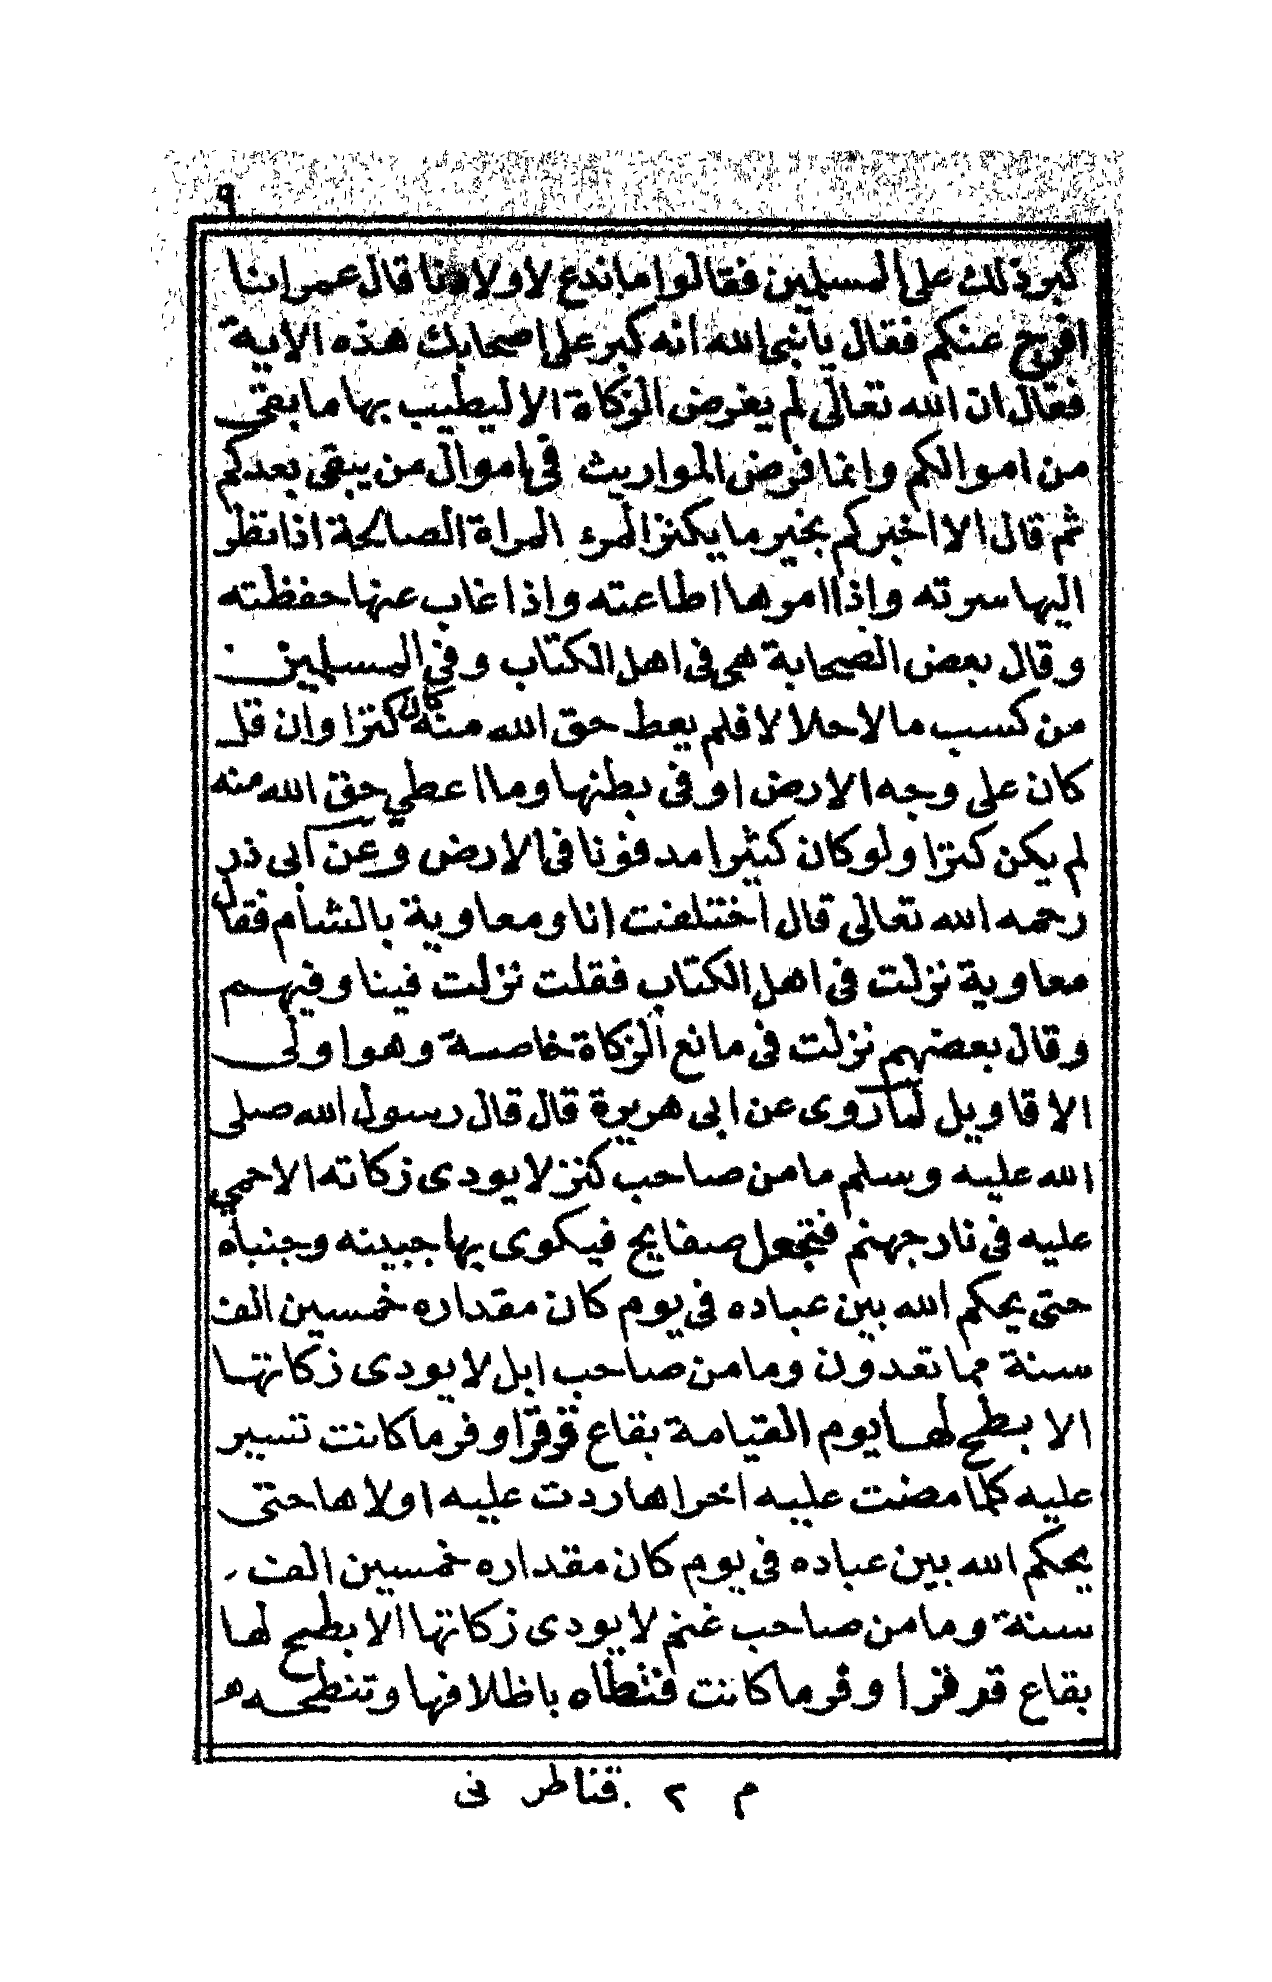 ٩
كبر ذلك على المسلمين فقالوا ماندع لاولادنا قال عمر اننا
افرج عنكم فقال يانبى الله انه كبر على اصحابك هذه الاية
فقال ان الله تعالى لم يفرض الزكاة الا ليطيب بها ما بقى
من اموالكم وانما فرض المواريث فى اموال من يبقى بعدكم
ثم قال الا اخبركم بخير ما يكنز المرء المراة الصالحة اذا نظر
اليها سرته واذا امرها اطاعته واذا غاب عنها حفظته
وقال بعض الصحابة هى فى اهل الكتاب وفى المسلمين
من كسب مالا حلالا فلم يعط حق الله منه كان كنزا وان قل
كان على وجه الارض او فى بطنها وما اعطي حق الله منه
لم يكن كنزا ولو كان كثيرا مدفونا فى الارض وعن ابى ذر
رحمه الله تعالى قال اختلفت انا ومعاوية بالشام فقال
معاوية نزلت فى اهل الكتاب فقلت نزلت فينا وفيهم
وقال بعضهم نزلت فى مانع الزكاة خاصة وهو اولى
الاقاويل لما روى عن ابى هريرة قال قال رسول الله صلى
الله عليه وسلم ما من صاحب كنز لا يودى زكاته الا حمي
عليه فى نار جهنم فتجعل صفايح فيكوى بها جبينه وجنباه
حتى يحكم الله بين عباده فى يوم كان مقداره خمسين الف
سنة مما تعدون وما من صاحب ابل لا يودى زكاتها
الا بطح لها يوم القيامة بقاع قرقرا وفر ما كانت تسير
عليه كلما مضت عليه اخراها ردت عليه اولاها حتى
يحكم الله بين عباده فى يوم كان مقداره خمسين الف
سنة وما من صاحب غنم لا يودى زكاتها الا بطح لها
بقاع قرقرا وفر ما كانت فتطاه باظلافها وتنطحه
م ٢ قناطر نى